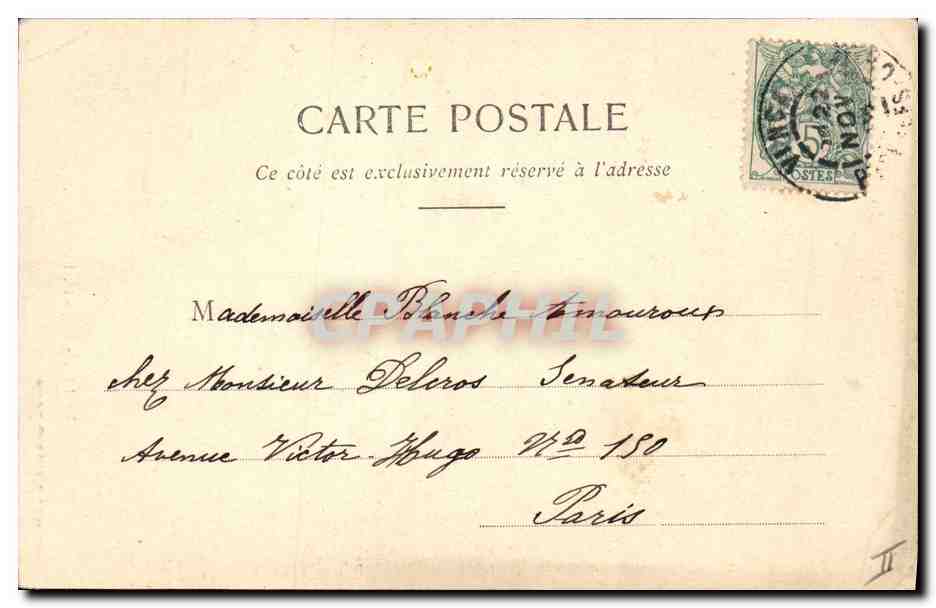 CARTE POSTALE
Ce côté est exclusivement réservé à l'adresse
5
POSTES
VINÇA
22
NOV
Mademoiselle Blanche Amouroux
chez Monsieur Delcros Senateur
Avenue Victor-Hugo No 150
Paris
CPAPHIL
II